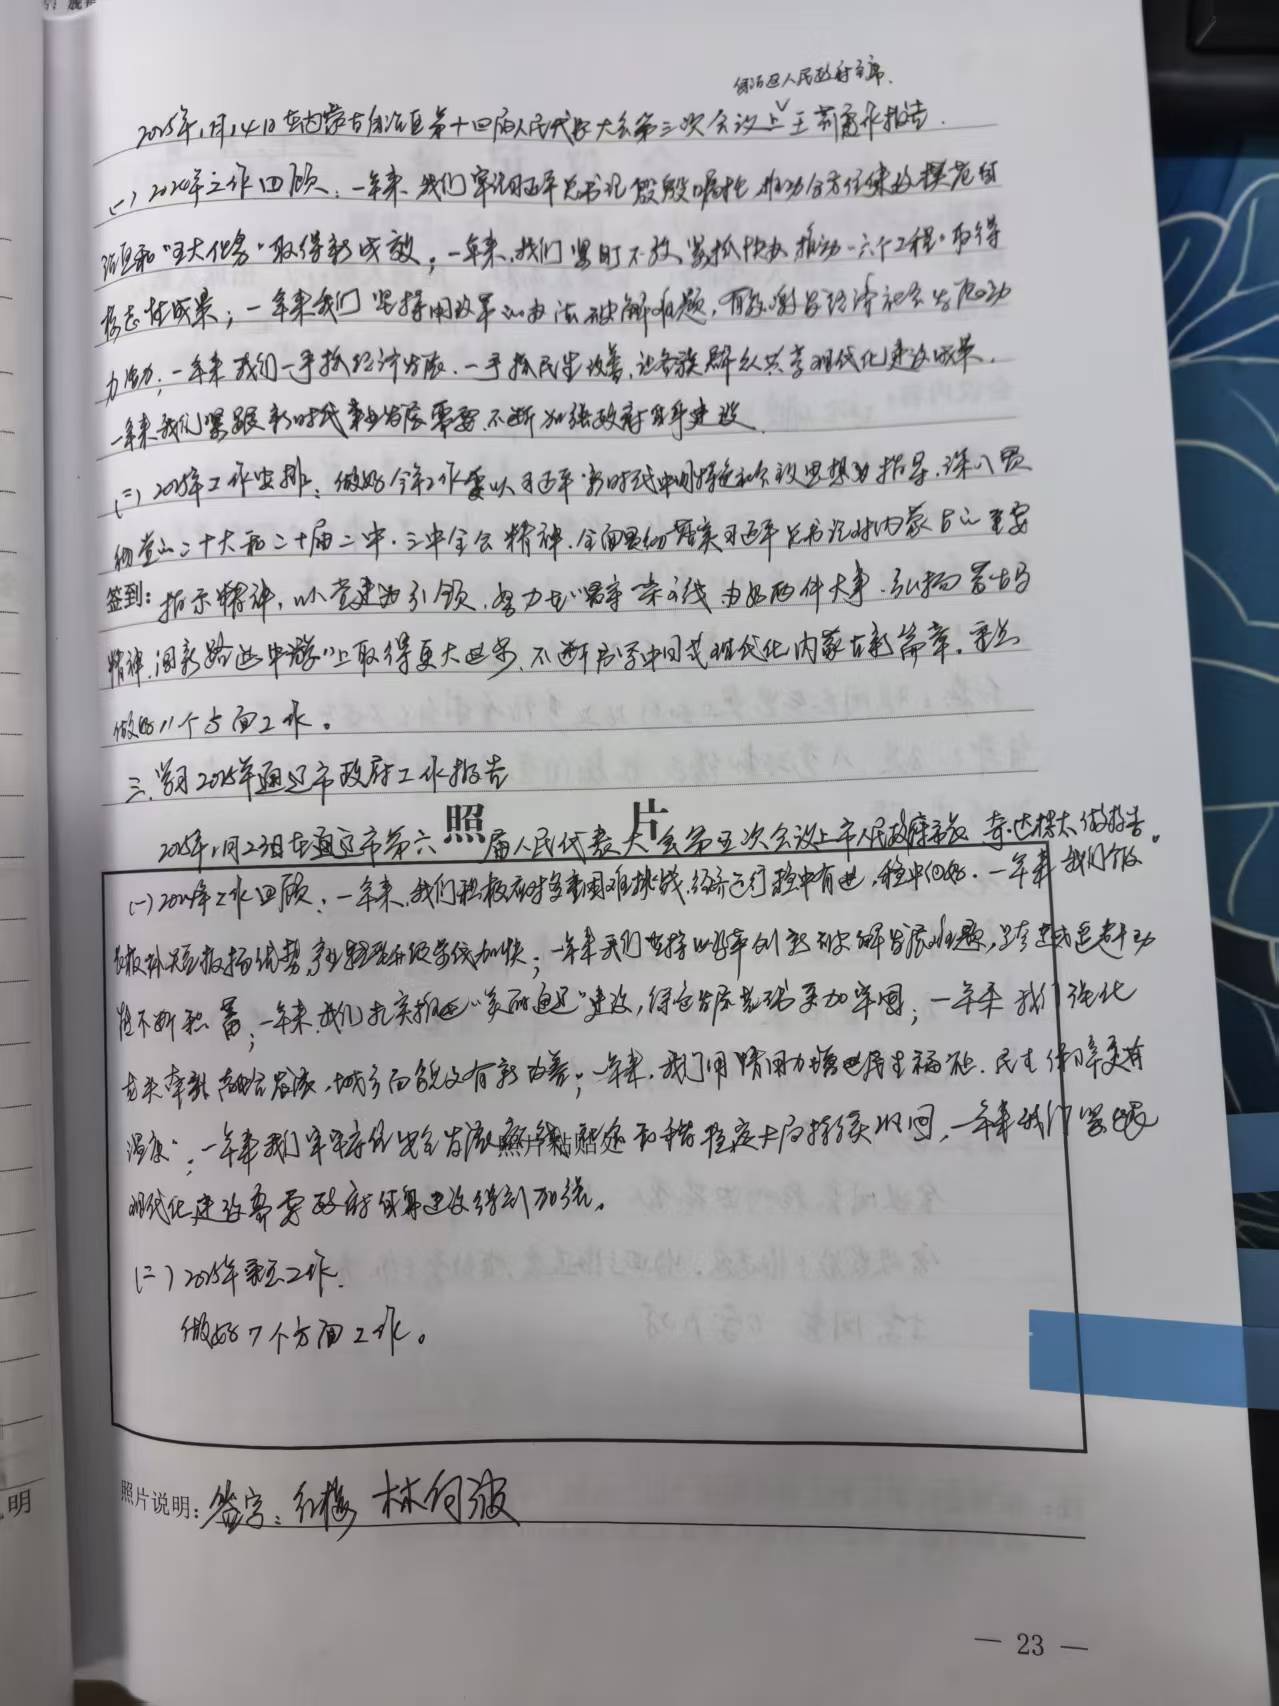 自治区人民政府主席
2025年1月14日在内蒙古自治区第十四届人民代表大会第三次会议上王莉霞作报告.
(一)2024年工作回顾:一年来,我们牢记习近平总书记殷殷嘱托,推动全方位建设模范自
治区和"五大任务"取得新成效;一年来,我们紧盯不放、紧抓快办推动"六个工程"取得
标志性成果;一年来我们坚持用改革的办法破解难题,有效激发经济社会发展动
力活力;一年来我们一手抓经济发展,一手抓民生改善,让各族群众共享现代化建设成果.
一年来我们紧跟新时代事业发展需要,不断加强政府自身建设.
(二)2025年工作安排:做好今年工作要以习近平新时代中国特色社会主义思想为指导,深入贯
彻党的二十大和二十届二中、三中全会精神,全面贯彻落实习近平总书记对内蒙古的重要
签到:指示精神,以党建为引领,努力 主线 办好两件大事,弘扬蒙古马
精神,闯新路进中游"上取得更大进步,不断书写中国式现代化内蒙古新篇章.重点
做好11个方面工作。
三.学习2025年通辽市政府工作报告
照片
2025年1月23日在通辽市第六届人民代表大会第五次会议上市人民政府市长 达 太做报告。
(一)2024年工作回顾:一年来,我们积极应对多重困难挑战,经济运行稳中有进,稳中向好.一年来我们
板补短板扬优势,产业转型升级步伐加快;一年来我们坚持以改革创新破解发展难题,
能不断积蓄;一年来,我们扎实推进"美丽通辽"建设,绿色发展 更加牢固;一年来我们强化
龙头牵引融合发展,城乡面貌又有新改善;一年来,我们用情用力增进民生福祉,民生保障更有
温度";一年来我们牢牢守住安全发展底线 和谐稳定大局持续巩固,一年来我们紧跟
照片粘贴处
现代化建设需要政府自身建设得到加强。
(二)2025年重点工作.
做好7个方面工作。
照片说明:签字:红梅 林何波
明
— 23 —